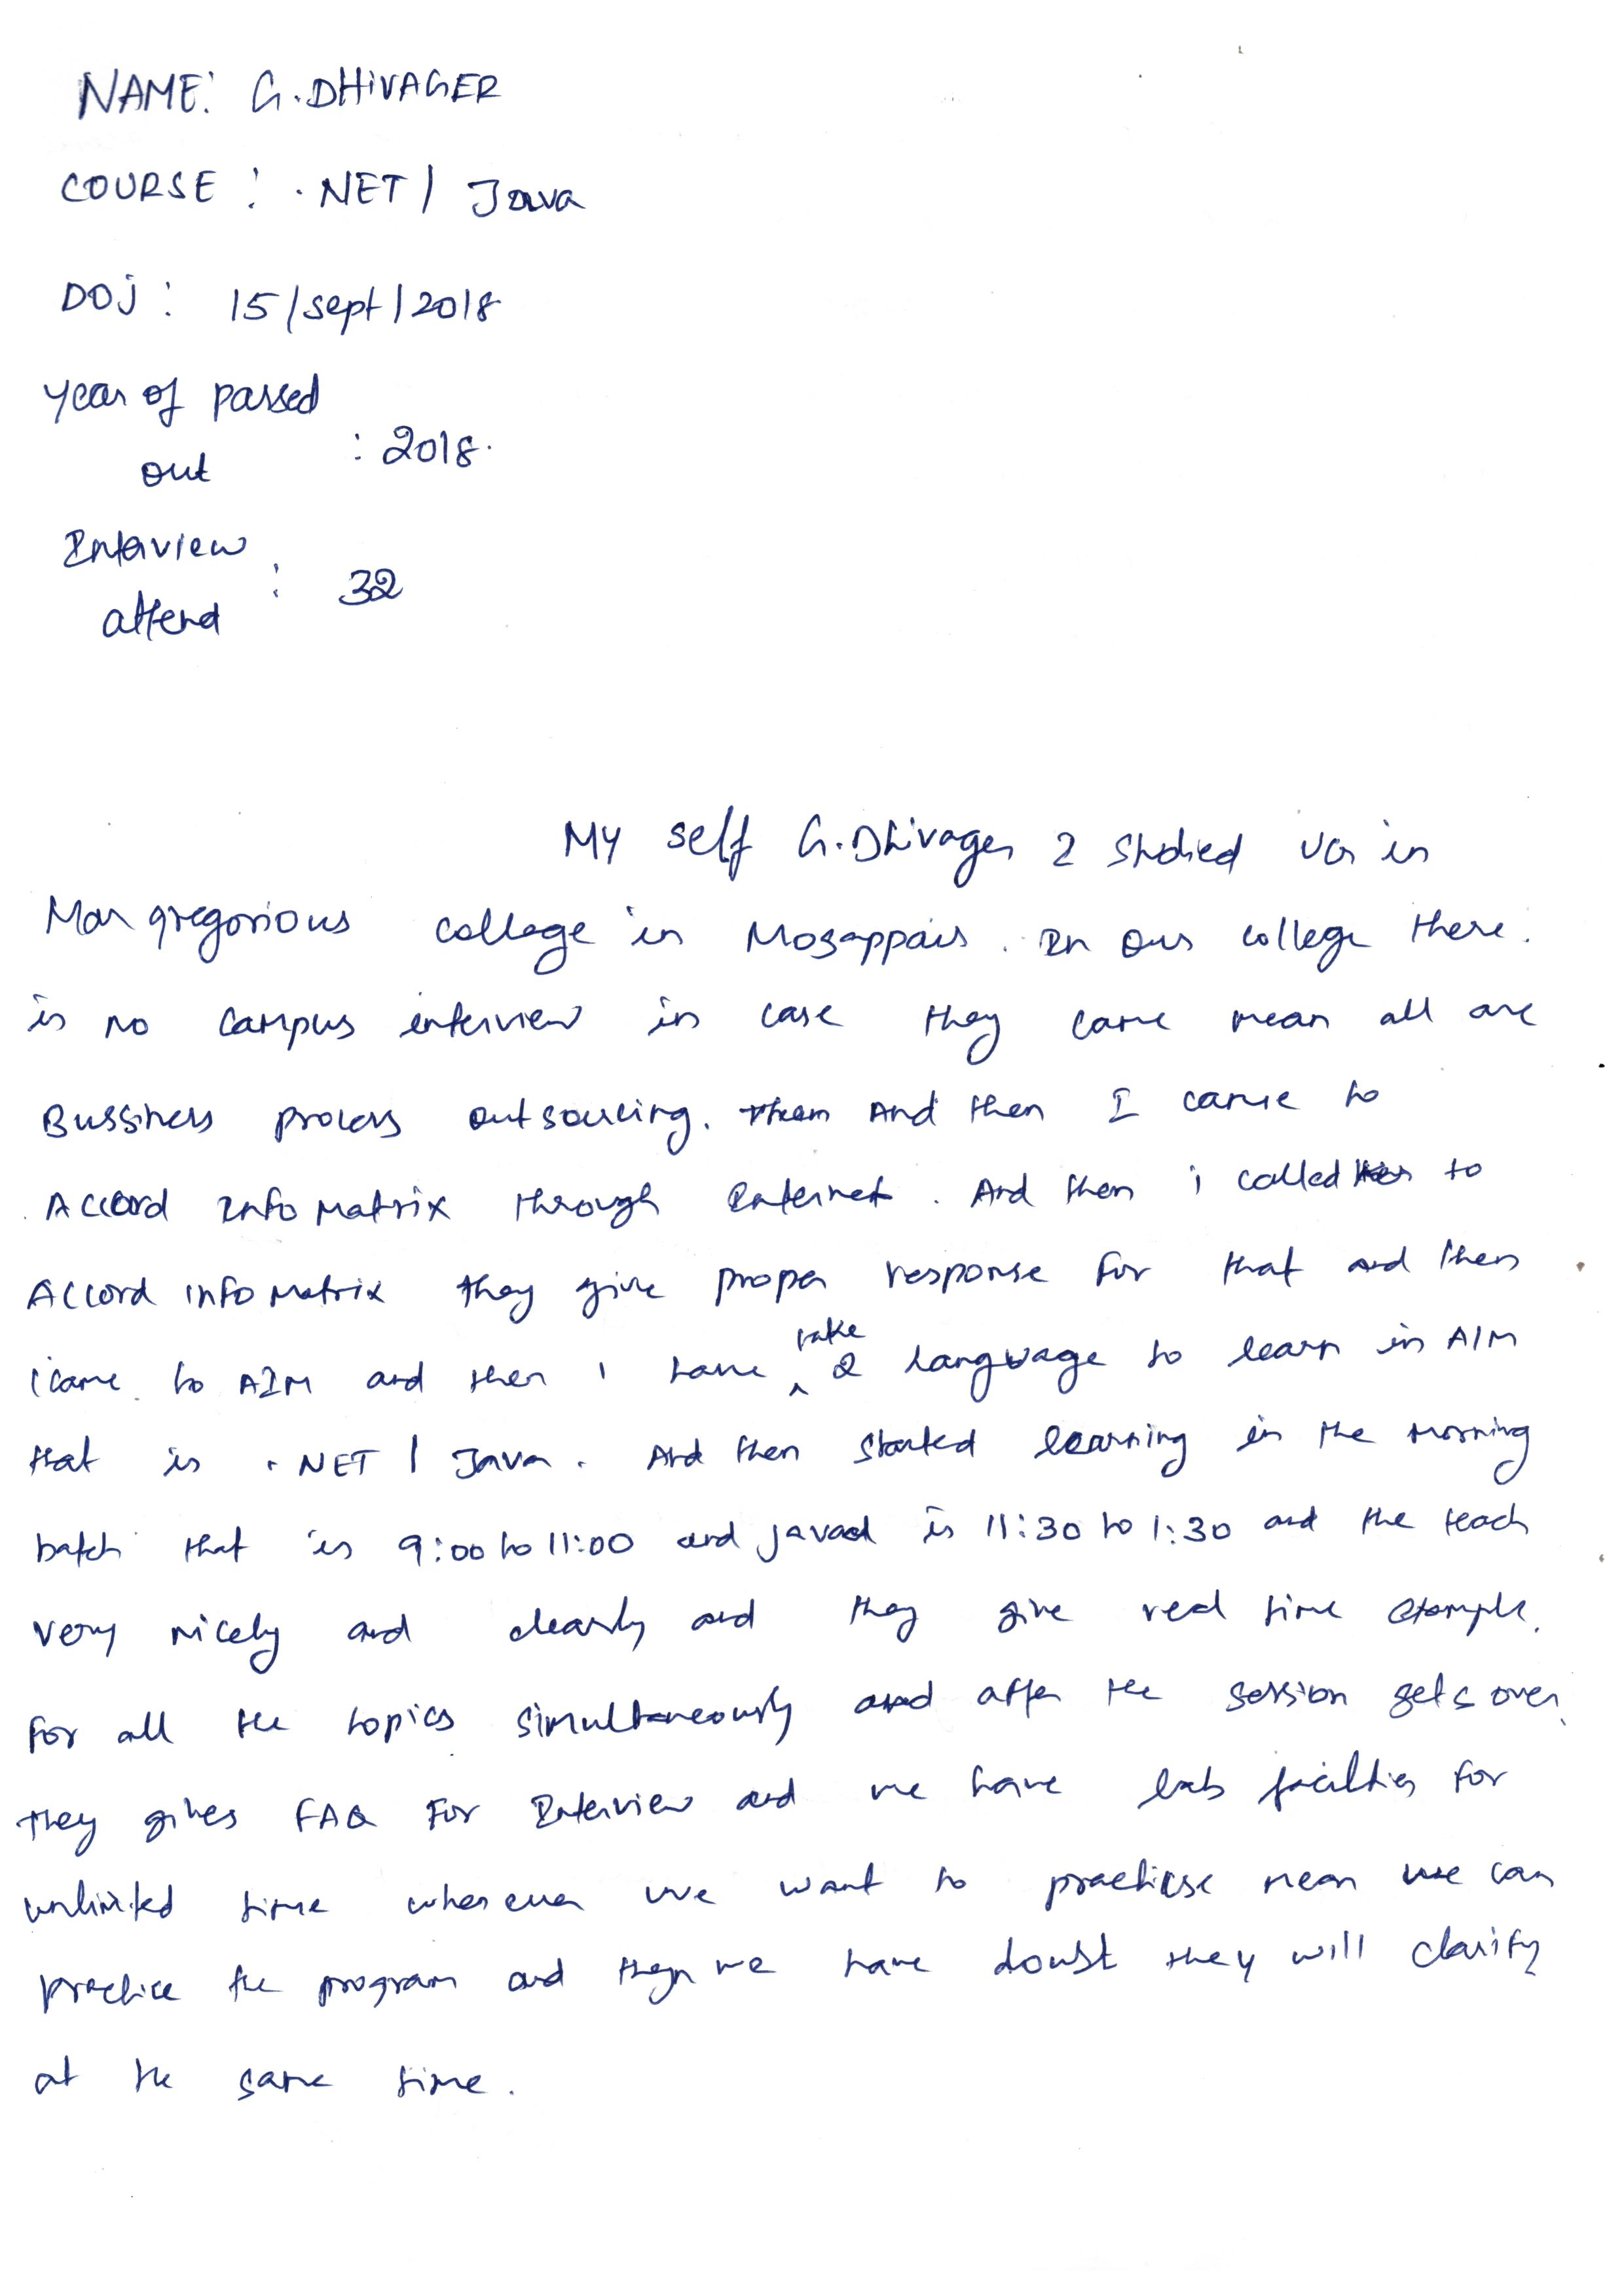 NAME: G.DHIVAGER
COURSE : .NET / Java
DOJ : 15/sept/2018
year of passed
out : 2018.
Interview
attend : 32
My self G.Dhivager I studied UG in
Mar gregorious college in Mogappair. In our college there.
is no campus interview in case they came mean all are
Bussiness process outsourcing. And then I came to
Accord Info Matrix through Internet. And then i called to
Accord info matrix they give proper response for that and then
i came to AIM and then i have take 2 language to learn in AIM
that is .NET / Java. And then started learning in the morning
batch that is 9:00 to 11:00 and java is 11:30 to 1:30 and the teach
very nicely and clearly and they give real time example.
for all the topics simultaneously and after the session gets over
they gives FAQ For Interview and we have lab facilties for
unlimited time whenever we want to practicse mean we can
practice the program and then we have doubt they will clarify
at the same time.